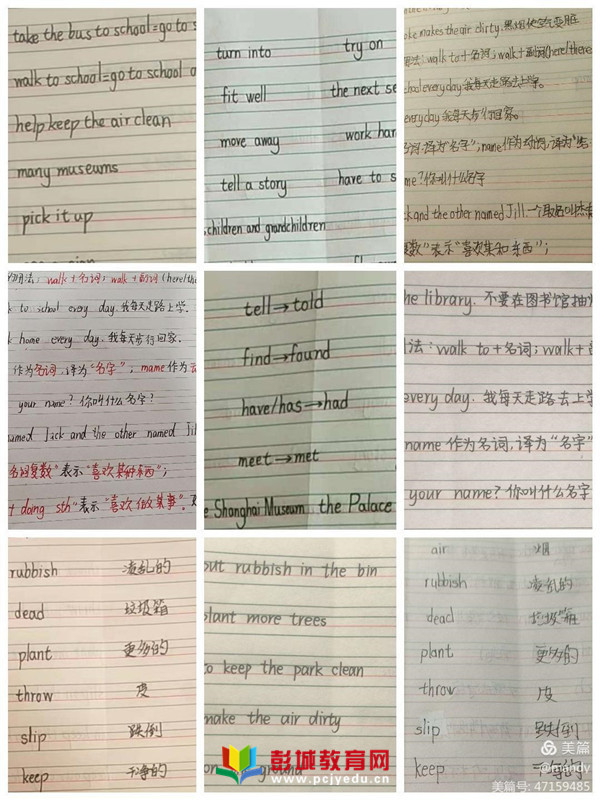 take the bus to school=go to s
walk to school=go to school o
help keep the air clean
many museums
pick it up
turn into try on
fit well the next se
move away work har
tell a story have to s
children and grandchildren
oke makes the air dirty. 黑烟使空气变脏
法: walk to+名词; walk+副词(here/there
chool every day 我每天走路去上学。
every day 我每天步行回家。
名词,译为"名字"; name作为动词,译为
me? 你叫什么名字
ck and the other named Jill 一个取名叫杰克
复数"表示"喜欢某种东西";
的用法: walk+名词; walk+副词(here/the
k to school every day. 我每天走路上学.
k home every day. 我每天步行回家.
作为名词,译为"名字"; mame作为
your name? 你叫什么名字?
named Jack and the other named Jil
名词复数"表示"喜欢某种东西";
t doing sth"表示"喜欢做某事".
tell→told
find→found
have/has→had
meet→met
e Shanghai Museum the Palace
he library. 不要在图书馆抽
法: walk to+名词; walk+
every day. 我每天走路去上学
name 作为名词,译为"名字"
your name? 你叫什么名字
rubbish 凌乱的
dead 垃圾箱
plant 更多的
throw 皮
slip 跌倒
keep 干净的
out rubbish in the bin
plant more trees
to keep the park clean
make the air dirty
on ground
air 烟
rubbish 凌乱的
dead 垃圾箱
plant 更多的
throw 皮
slip 跌倒
keep 干净的
彭城教育网
www.pcjyedu.cn
美篇
美篇号: 47159485